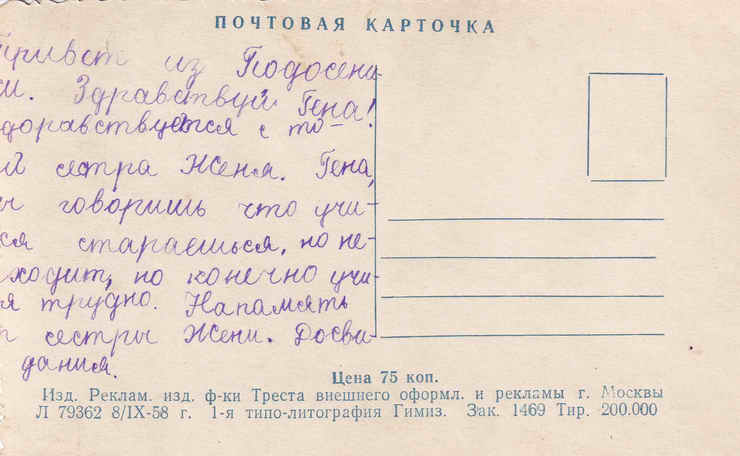 ПОЧТОВАЯ КАРТОЧКА
Привет из Подосени-
Здравствуй Гена!
здоравствуется с то-
й сестра Женя. Гена,
ы говоришь что учи-
ся стараешься, но не
ходит, но конечно учи-
я трудно. Напамять
сестры Жени. Досви-
дания.
Цена 75 коп.
Изд. Реклам. изд. ф-ки Треста внешнего оформл. и рекламы г. Москвы
Л 79362 8/IX-58 г. 1-я типо-литография Гимиз. Зак. 1469 Тир. 200.000